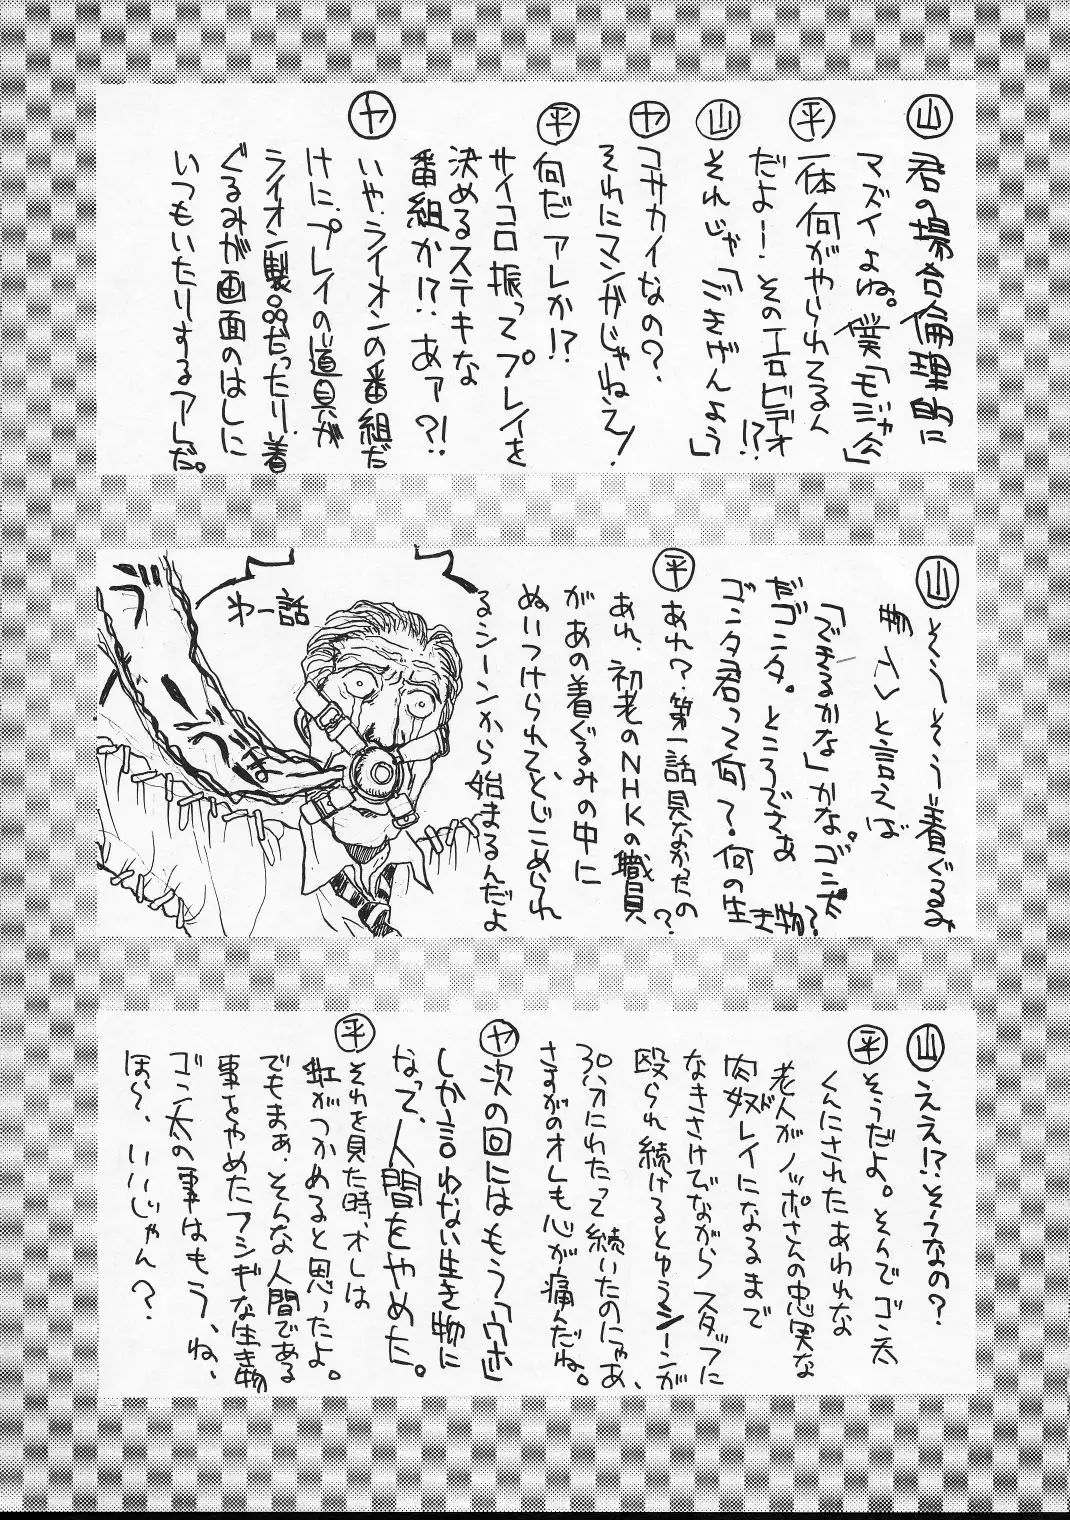 ㊤山 君の場合倫理的に
マズイよね。僕「モジャ公」
平 一体何がやられてるん
だよ！そのエロビデオ!?
山 それじゃ「ごきげんよう」
ヤ コサカイなの？
それにマンガじゃねえ！
平 何だアレか!?
サイコロ振ってプレイを
決めるステキな
番組か!? あァ?!
ヤ いや、ライオンの番組だ
けに、プレイの道具が
ライオン製品だったり、着
ぐるみが画面のはしに
いつもいたりするアレだ。
山 そうそう着ぐるみ
と言えば
「できるかな」かな。ゴン太
だゴンタ。ところでさぁ
ゴンタ君って何？何の生き物？
平 あれ？第一話見なかったの？
あれ、初老のNHKの職員
があの着ぐるみの中に
ぬいつけられて、とじこめられ
るシーンから始まるんだよ
㐧一話
山 ええ!?そうなの？
平 そうだよ。そんでゴン太
くんにされたあわれな
老人がノッポさんの忠実な
肉奴レイになるまで
なきさけびながらスタッフに
殴られ続けるとゆうシーンが
30分にわたって続いたのにゃあ、
さすがのオレも心が痛んだね。
ヤ 次の回にはもう「ウホ」
しか言わない生き物に
なって、人間をやめた。
平 それを見た時、オレは
虹がつかめると思ったよ。
でもまぁ、そんな人間である
事をやめたフシギな生き物
ゴン太の事はもう、ね、
ほら、いいじゃん？